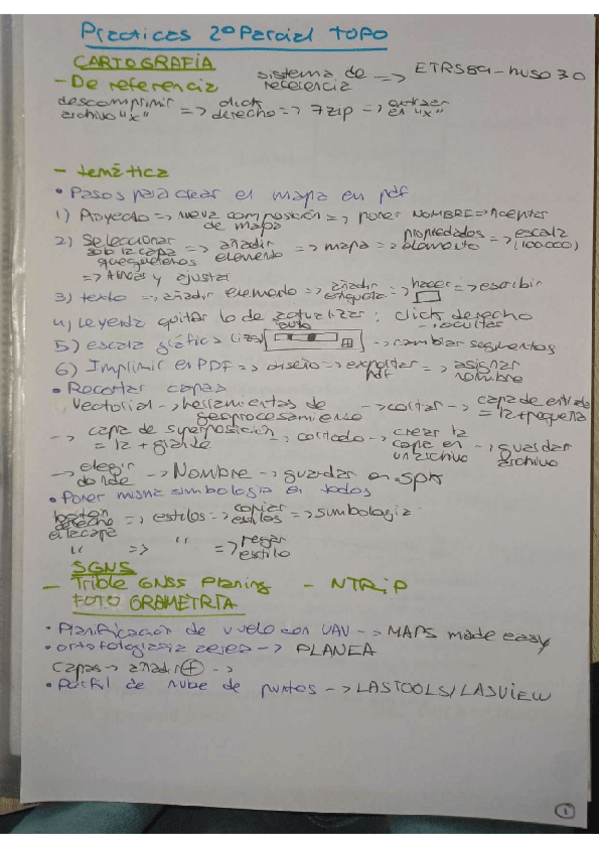 Practicas 2º Parcial TOPO
CARTOGRAFÍA
- De referencia sistema de referencia => ETRS89 - huso 30
descomprimir archivo "x" => click derecho => 7zip => extraer en "x"
- temática
• Pasos para crear el mapa en pdf
1) Proyecto => nueva composición de mapa => poner NOMBRE => Aceptar
2) Seleccionar solo la capa que queremos => añadir elemento => mapa => propiedades elemento => escala (100.000)
=> y ajustar
3) texto => añadir elemento => añadir etiqueta => hacer => escribir
4) Leyenda quitar lo de actualizar auto; click derecho -> ocultar
5) escala gráfica (izq) -> cambiar segmentos
6) Imprimir en PDF => diseño => exportar pdf => asignar nombre
• Recortar capas
Vectorial -> herramientas de geoprocesamiento -> cortar -> capa de entrada = la + pequeña
-> capa de superposición = la + grande -> cortado -> crear la capa en un archivo -> guardar archivo
-> elegir donde -> Nombre -> guardar en .spk
• Poner misma simbología en todos
botón derecho en la capa => estilos => copiar estilos => simbología
" => " => pegar estilo
SGNS
- Trible GNSS Planing - NTRiP
FOTOGRAMETRÍA
• Planificación de vuelo con UAV -> MAPS made easy
• ortofotografía aerea -> PLANEA
capas -> añadir + ->
• Perfil de nube de puntos -> LASTOOLS/LASVIEW
1